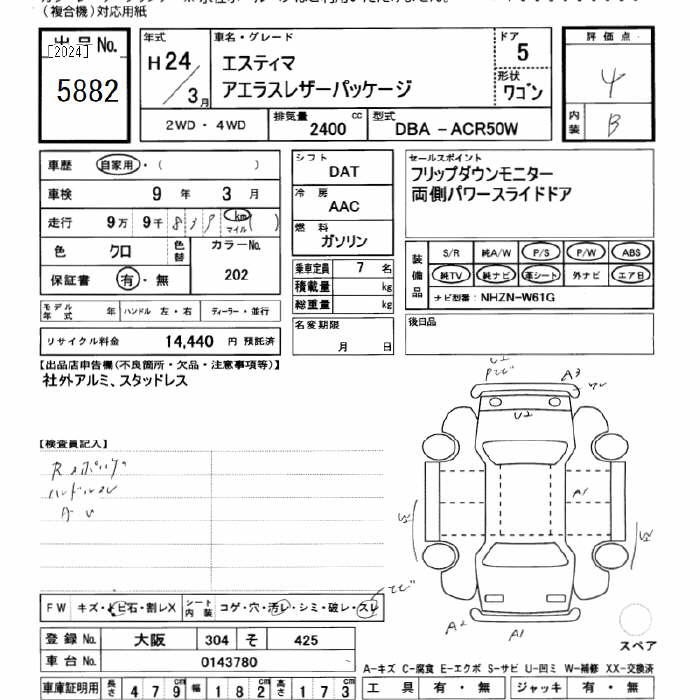 (複合機)対応用紙
出品No.
[2024]
5882
年式
H 24 / 3 月
車名・グレード
エスティマ
アエラスレザーパッケージ
ドア
5
形状
ワゴン
評価点
4
内装
B
2WD・4WD
排気量 2400 cc
型式 DBA－ACR50W
車歴 自家用・( )
車検 9 年 3 月
走行 9万 9千 8 km マイル ( )
色 クロ 色替
カラーNo.
202
保証書 有・無
シフト
DAT
冷房
AAC
燃料
ガソリン
セールスポイント
フリップダウンモニター
両側パワースライドドア
装備品
S/R 純A/W P/S P/W ABS
純TV 純ナビ 革シート 外ナビ エアB
ナビ型番：NHZN-W61G
乗車定員 7 名
積載量 kg
総重量 kg
モデル年式 年 ハンドル 左・右 ディーラー・並行
リサイクル料金 14,440 円 預託済
名変期限
月 日
後日品
【出品店申告欄(不良箇所・欠品・注意事項等)】
社外アルミ、スタッドレス
【検査員記入】
A3
U2
A1
A2
A1
スペア
FW キズ・トビ石・割レX シート内装 コゲ・穴・汚レ・シミ・破レ・スレ
登録No. 大阪 304 そ 425
車台No. 0143780
車庫証明用 長さ 479 cm 幅 182 cm 高さ 173 cm
A-キズ C-腐食 E-エクボ S-サビ U-凹ミ W-補修 XX-交換済
工具 有・無 ジャッキ 有・無